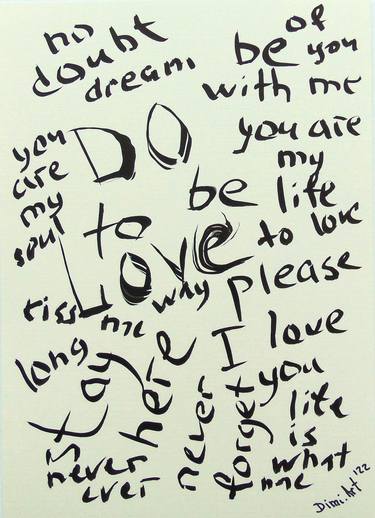 no
doubt
dream
of
be you
with me
you are
my
life
to love
you
are
my
soul
DO
to be
LOVE
kiss me
why
please
long
stay
here
I love
you
never
forget
life
is
what
me
is
never
ever
Dimi.Art '22